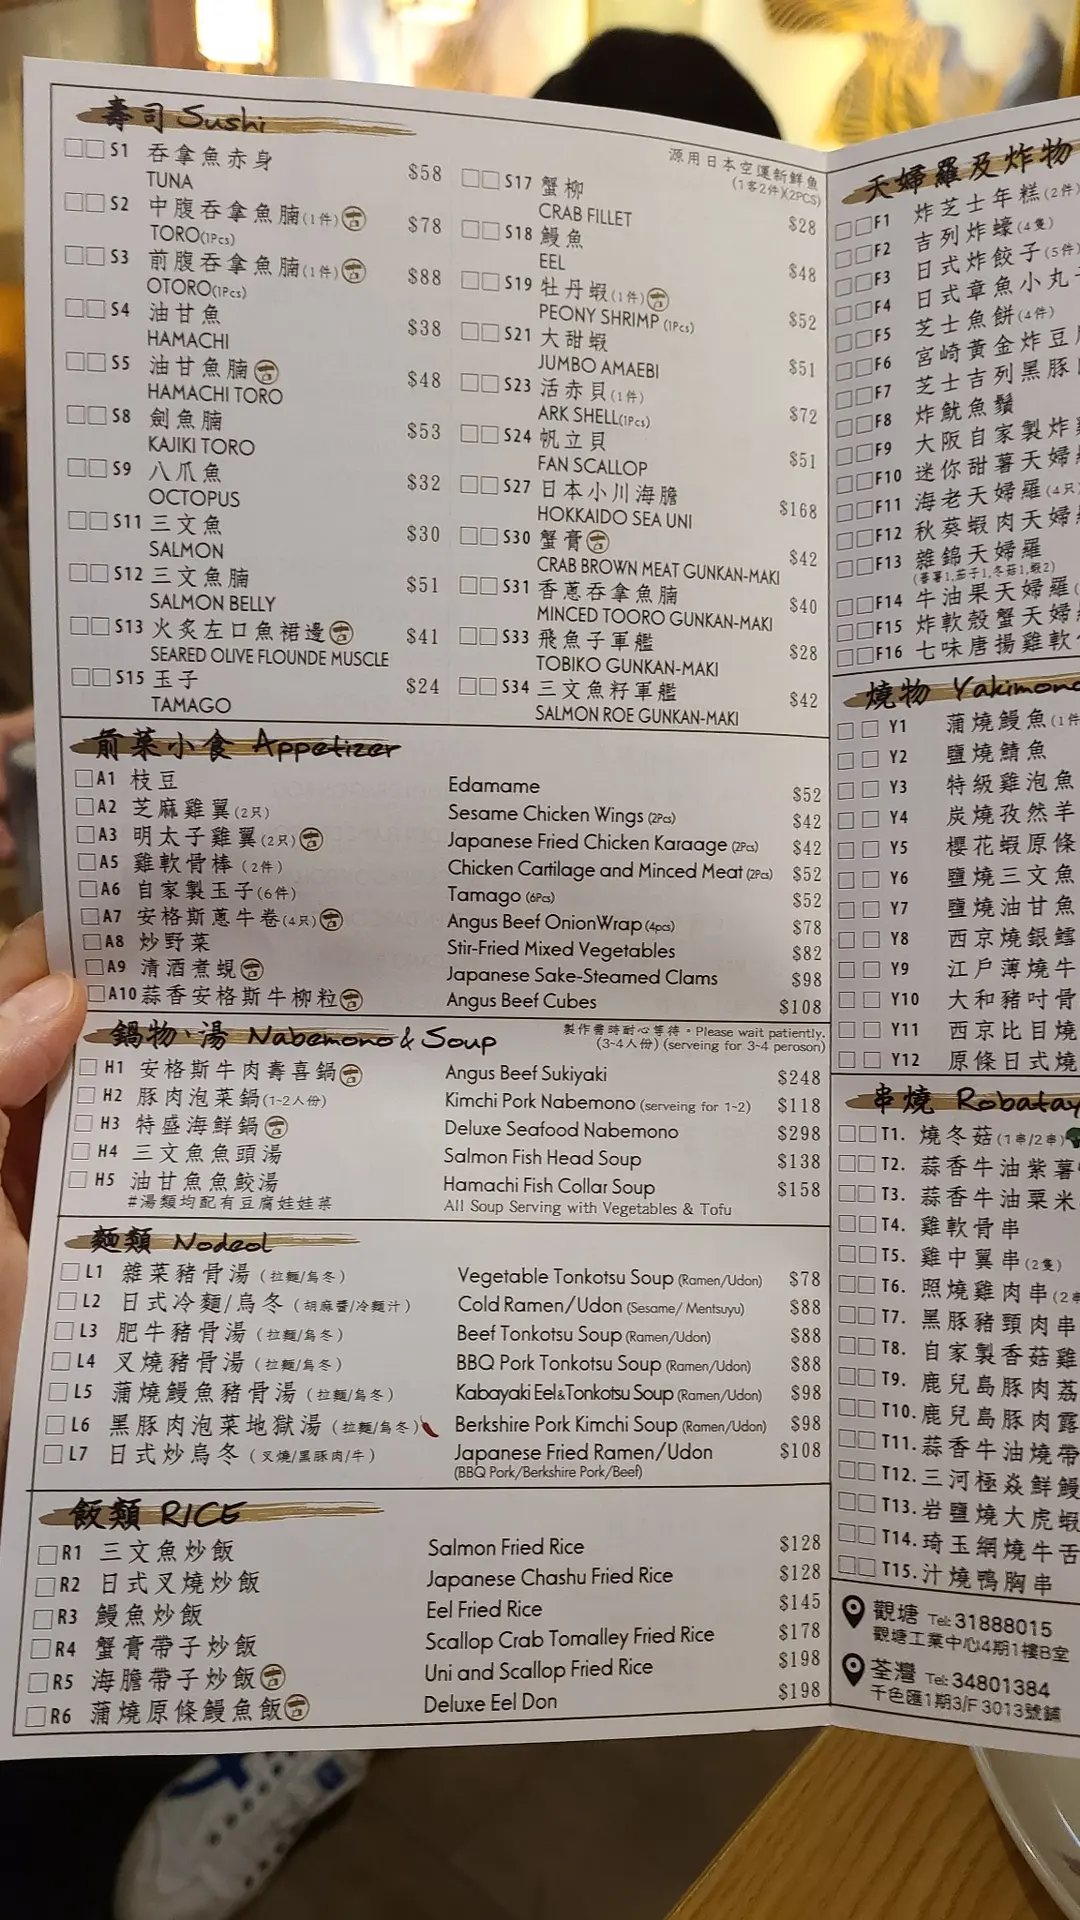 壽司 Sushi
源用日本空運新鮮魚
(1客2件)(2PCS)
S1 吞拿魚赤身 $58
TUNA
S2 中腹吞拿魚腩(1件) 吉 $78
TORO(1Pcs)
S3 前腹吞拿魚腩(1件) 吉 $88
OTORO(1Pcs)
S4 油甘魚 $38
HAMACHI
S5 油甘魚腩 吉 $48
HAMACHI TORO
S8 劍魚腩 $53
KAJIKI TORO
S9 八爪魚 $32
OCTOPUS
S11 三文魚 $30
SALMON
S12 三文魚腩 $51
SALMON BELLY
S13 火炙左口魚裙邊 吉 $41
SEARED OLIVE FLOUNDE MUSCLE
S15 玉子 $24
TAMAGO
S17 蟹柳 $28
CRAB FILLET
S18 鰻魚 $48
EEL
S19 牡丹蝦(1件) 吉 $52
PEONY SHRIMP (1Pcs)
S21 大甜蝦 $51
JUMBO AMAEBI
S23 活赤貝(1件) $72
ARK SHELL(1Pcs)
S24 帆立貝 $51
FAN SCALLOP
S27 日本小川海膽 $168
HOKKAIDO SEA UNI
S30 蟹膏 吉 $42
CRAB BROWN MEAT GUNKAN-MAKI
S31 香蔥吞拿魚腩 $40
MINCED TOORO GUNKAN-MAKI
S33 飛魚子軍艦 $28
TOBIKO GUNKAN-MAKI
S34 三文魚籽軍艦 $42
SALMON ROE GUNKAN-MAKI
前菜小食 Appetizer
A1 枝豆 Edamame $52
A2 芝麻雞翼(2只) Sesame Chicken Wings (2Pcs) $42
A3 明太子雞翼(2只) 吉 Japanese Fried Chicken Karaage (2Pcs) $42
A5 雞軟骨棒(2件) Chicken Cartilage and Minced Meat (2Pcs) $52
A6 自家製玉子(6件) Tamago (6Pcs) $52
A7 安格斯蔥牛卷(4只) 吉 Angus Beef OnionWrap (4pcs) $78
A8 炒野菜 Stir-Fried Mixed Vegetables $82
A9 清酒煮蜆 吉 Japanese Sake-Steamed Clams $98
A10 蒜香安格斯牛柳粒 吉 Angus Beef Cubes $108
鍋物、湯 Nabemono & Soup
製作需時耐心等待・Please wait patiently.
(3~4人份) (serveing for 3~4 peroson)
H1 安格斯牛肉壽喜鍋 吉 Angus Beef Sukiyaki $248
H2 豚肉泡菜鍋(1~2人份) Kimchi Pork Nabemono (serveing for 1~2) $118
H3 特盛海鮮鍋 吉 Deluxe Seafood Nabemono $298
H4 三文魚魚頭湯 Salmon Fish Head Soup $138
H5 油甘魚魚鮫湯 Hamachi Fish Collar Soup $158
#湯類均配有豆腐娃娃菜 All Soup Serving with Vegetables & Tofu
麵類 Nodeol
L1 雜菜豬骨湯(拉麵/烏冬) Vegetable Tonkotsu Soup (Ramen/Udon) $78
L2 日式冷麵/烏冬(胡麻醬/冷麵汁) Cold Ramen/Udon (Sesame/ Mentsuyu) $88
L3 肥牛豬骨湯(拉麵/烏冬) Beef Tonkotsu Soup (Ramen/Udon) $88
L4 叉燒豬骨湯(拉麵/烏冬) BBQ Pork Tonkotsu Soup (Ramen/Udon) $88
L5 蒲燒鰻魚豬骨湯(拉麵/烏冬) Kabayaki Eel&Tonkotsu Soup (Ramen/Udon) $98
L6 黑豚肉泡菜地獄湯(拉麵/烏冬) Berkshire Pork Kimchi Soup (Ramen/Udon) $98
L7 日式炒烏冬(叉燒/黑豚肉/牛) Japanese Fried Ramen/Udon $108
(BBQ Pork/Berkshire Pork/Beef)
飯類 RICE
R1 三文魚炒飯 Salmon Fried Rice $128
R2 日式叉燒炒飯 Japanese Chashu Fried Rice $128
R3 鰻魚炒飯 Eel Fried Rice $145
R4 蟹膏帶子炒飯 Scallop Crab Tomalley Fried Rice $178
R5 海膽帶子炒飯 吉 Uni and Scallop Fried Rice $198
R6 蒲燒原條鰻魚飯 吉 Deluxe Eel Don $198
天婦羅及炸物
F1 炸芝士年糕(2件)
F2 吉列炸蠔(4隻)
F3 日式炸餃子(5件)
F4 日式章魚小丸子
F5 芝士魚餅(4件)
F6 宮崎黃金炸豆
F7 芝士吉列黑豚
F8 炸魷魚鬚
F9 大阪自家製炸
F10 迷你甜薯天婦羅
F11 海老天婦羅(4只)
F12 秋葵蝦肉天婦
F13 雜錦天婦羅
(蕃薯1,茄子1,冬菇1,蝦2)
F14 牛油果天婦羅
F15 炸軟殼蟹天婦
F16 七味唐揚雞軟
燒物 Yakimono
Y1 蒲燒鰻魚(1件
Y2 鹽燒鯖魚
Y3 特級雞泡魚
Y4 炭燒孜然羊
Y5 櫻花蝦原條
Y6 鹽燒三文魚
Y7 鹽燒油甘魚
Y8 西京燒銀鱈
Y9 江戶薄燒牛
Y10 大和豬吋骨
Y11 西京比目燒
Y12 原條日式燒
串燒 Robatay
T1. 燒冬菇(1串/2串)
T2. 蒜香牛油紫薯
T3. 蒜香牛油粟米
T4. 雞軟骨串
T5. 雞中翼串(2隻)
T6. 照燒雞肉串(2串
T7. 黑豚豬頸肉串
T8. 自家製香菇雞
T9. 鹿兒島豚肉荔
T10. 鹿兒島豚肉露
T11. 蒜香牛油燒帶
T12. 三河極焱鮮鰻
T13. 岩鹽燒大虎蝦
T14. 琦玉網燒牛舌
T15. 汁燒鴨胸串
觀塘 Tel: 31888015
觀塘工業中心4期1樓B室
荃灣 Tel: 34801384
千色匯1期3/F 3013號舖